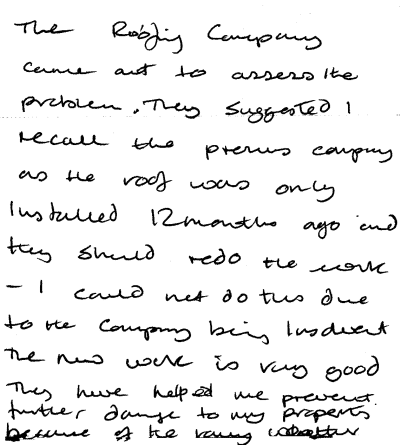 The Roofing Company
came out to assess the
problem. They suggested I
recall the previous company
as the roof was only
installed 12 months ago and
they should redo the work
- I could not do this due
to the company being insolvent
The new work is very good
They have helped me prevent
further damage to my property
because of the rainy weather